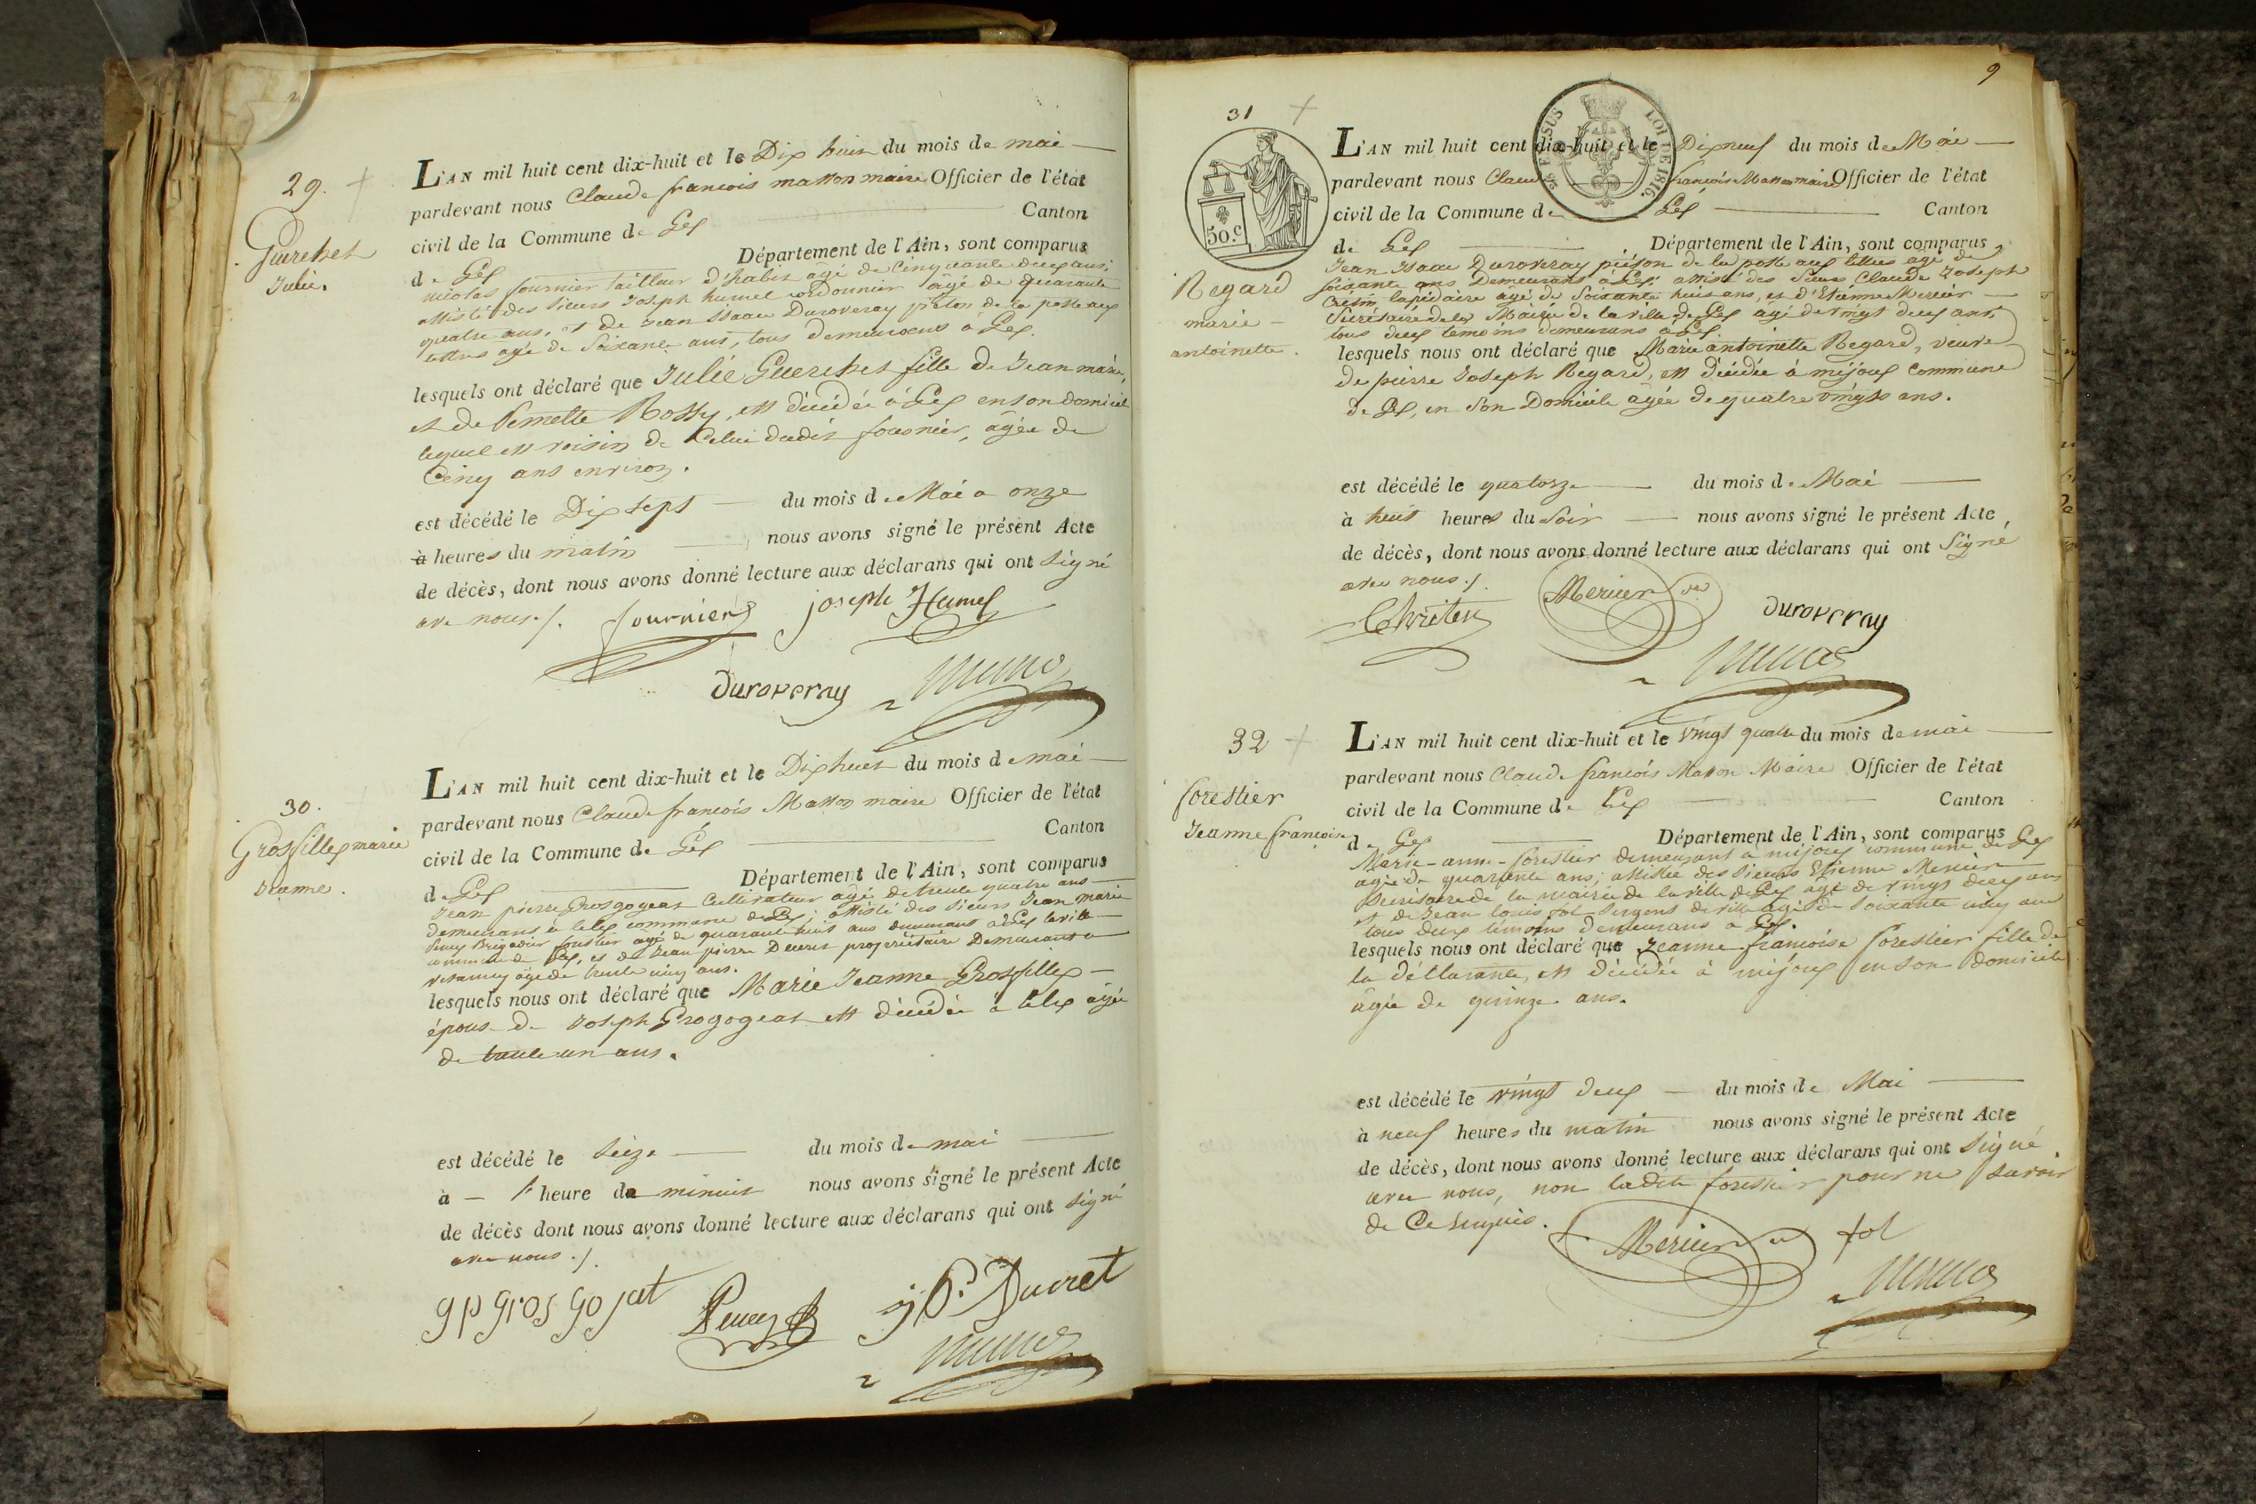 29. +
Guerchet
Julie.
L'AN mil huit cent dix-huit et le Dix huit du mois de mai
pardevant nous Claude françois masson maire Officier de l'état
civil de la Commune de Gex Canton
de Gex Département de l'Ain, sont comparus
nicolas fournier tailleur d'habit agé de Cinquante deux ans,
assisté des sieurs Joseph humel cordonnier agé de quarante
quatre ans, et de Jean Isaac Duroveray piéton de la poste aux
lettres agé de soixante ans, tous demeurans à Gex.
lesquels ont déclaré que Julie Guerchet fille de Jean marie,
et de Pernette Rossy, est décédée à Gex en son domicile
lequel est voisin de Celui dudit fournier, âgée de
Cinq ans environ.
est décédé le Dix sept du mois de Mai a onze
à heures du matin nous avons signé le présent Acte
de décès, dont nous avons donné lecture aux déclarans qui ont signé
avec nous ./.
fournier joseph Humel
Duroveray
30.
Grosfillex marie
Jeanne.
L'AN mil huit cent dix-huit et le Dix huit du mois de mai
pardevant nous Claude françois Masson maire Officier de l'état
civil de la Commune de Gex Canton
de Gex Département de l'Ain, sont comparus
Jean pierre Grosgogeat Cultivateur agé de trente quatre ans
demeurant à lelex commune de Gex; assisté des sieurs Jean marie
Brigadier forestier agé de quarante huit ans demeurant à Lex la ville
commune de Gex, et de Jean pierre Ducret propriétaire Demeurant a
agé de trente cinq ans.
lesquels nous ont déclaré que Marie Jeanne Grosfillex
épouse de Joseph Grogogeat est décédée à lelex âgée
de trente un ans.
est décédé le seize du mois de mai
à heure de minuit nous avons signé le présent Acte
de décès dont nous avons donné lecture aux déclarans qui ont signé
avec nous ./.
gp gros go jat Ducret
9
31 +
50.c
LOI DE 1816.
Regard
marie
antoinette.
L'AN mil huit cent dix-huit et le Dixneuf du mois de Mai
pardevant nous Claude françois Masson maire Officier de l'état
civil de la Commune de Gex Canton
de Gex Département de l'Ain, sont comparus
Jean Isaac Duroveray piéton de la poste aux lettres agé de
soixante ans Demeurant à Gex; assisté des sieurs Claude Joseph
lapidaire agé de Soixante huit ans, et d'Etienne Mercier
Sécrétaire de la Mairie de la ville de Gex agé de vingt deux ans,
tous deux temoins demeurans à Gex.
lesquels nous ont déclaré que Marie antoinette Regard, veuve
de pierre Joseph Regard, est décédée à mijoux commune
de Gex, en son Domicile âgée de quatre vingts ans.
est décédé le quatorze du mois de Mai
à huit heures du soir nous avons signé le présent Acte
de décès, dont nous avons donné lecture aux déclarans qui ont Signé
avec nous ./.
Mercier Duroveray
32 +
forestier
Jeanne françoise
L'AN mil huit cent dix-huit et le vingt quatre du mois de mai
pardevant nous Claude françois Masson Maire Officier de l'état
civil de la Commune de Gex Canton
de Gex Département de l'Ain, sont comparus
Marie-anne-forestier demeurant a mijoux commune de Gex
agée de quarante ans; assistée des sieurs Etienne Mercier
secrétaire de la mairie de la ville de Gex agé de vingt deux ans
et de Jean louis fol sergent de ville agé de soixante cinq ans
tous deux témoins demeurans à Gex.
lesquels nous ont déclaré que Jeanne françoise forestier fille de
la déclarante, est décédée à mijoux en son domicile
âgée de quinze ans.
est décédé le vingt deux du mois de Mai
à neuf heures du matin nous avons signé le présent Acte
de décès, dont nous avons donné lecture aux déclarans qui ont signé
avec nous, non ladite forestier pour ne savoir
de Ce enquis.
Mercier fol